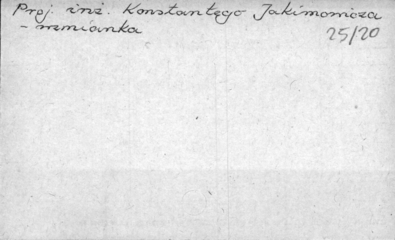 Proj. inż. Konstantego Jakimowicza
- wzmianka 25/20